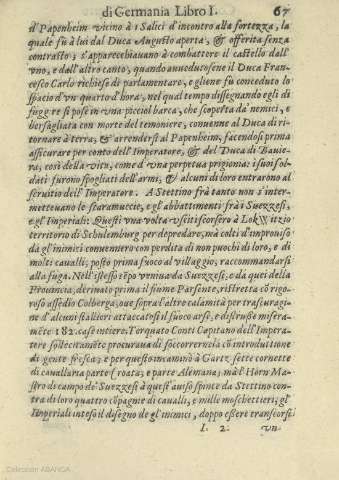 di Germania Libro I. 67
il Papenheim vicino à i Salici d'incontro alla fortezza, la
quale fù à lui dal Duca Augusto aperta, & offerita senza
contrasto; s'apparecchiauano à combattere il castello dall'
vno, e dall'altro canto, quando auuedutosene il Duca Fran-
cesco Carlo richiese di parlamentare, e gliene fù conceduto lo
spacio d'vn quarto d'hora, nel qual tempo disegnando egli di
fuggire si pose in vna picciol barca, che scoperta da' nemici, e
bersagliata con morte del temoniere, conuenne al Duca di ri-
tornare à terra, & arrendersi al Papenheim, facendosi prima
assicurare per conto dell'Imperatore, & del Duca di Bauie-
ra, così della vita, come d'vna perpetua prigionia: i suoi sol-
dati furono spogliati dell'armi, & alcuni di loro entrarono al
seruitio dell'Imperatore. A Stettino frà tanto non s'inter-
metteuano le scaramuccie, e gl'abbattimenti frà i Suezzesi,
e gl'Imperiali: Questi vna volta vsciti scorsero à Lokwitzio
territorio di Schulemburg per depredare, mà colti d'improuiso
da gl'inimici conuennero con perdita di non puochi di loro, e di
molti caualli, posto prima fuoco al villaggio, raccommandarsi
alla fuga. Nell'istesso tẽpo veniua da Suezzesi, e da quei della
Prouincia, derinato prima il fiume Parsente, ristretta cõ rigo-
roso assedio Colberga, oue sopra l'altre calamità per trascuragi-
ne d'alcuni stallieri attaccatosi il fuoco arse, e distrusse misera-
mẽte 182. case intiere. Torquato Conti Capitano dell'Impera-
tore sollecitamẽte procuraua di soccorrerla cõ introduttione
di gente fresca; e per questo inuiaua à Gartz sette cornette
di cauallaria parte Croata; e parte Alemana; mà l'Horn Ma-
stro di campo de' Suezzesi à quest'auiso spinse da Stettino con-
tra di loro quattro cõpagnie di caualli, e mille moschettieri; gl'
Imperiali inteso il disegno de gl'inimici, doppo essere trascorsi
I. 2. vn
Colección ABANCA